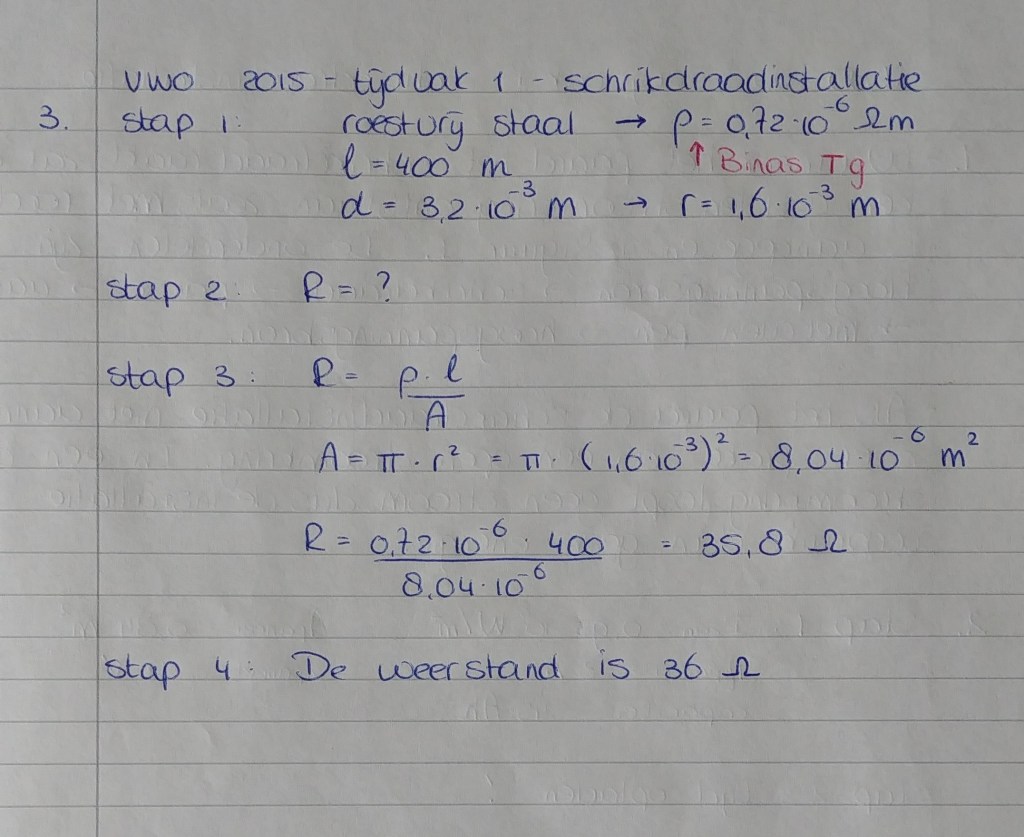 VWO 2015 - tijdvak 1 - schrikdraadinstallatie
3. stap 1: roestvrij staal → ρ = 0,72·10⁻⁶ Ωm
l = 400 m ↑ Binas T9
d = 3,2·10⁻³ m → r = 1,6·10⁻³ m
stap 2: R = ?
stap 3: R = ρ·l
A
A = π·r² = π·(1,6·10⁻³)² = 8,04·10⁻⁶ m²
R = 0,72·10⁻⁶ · 400 = 35,8 Ω
8,04·10⁻⁶
stap 4: De weerstand is 36 Ω